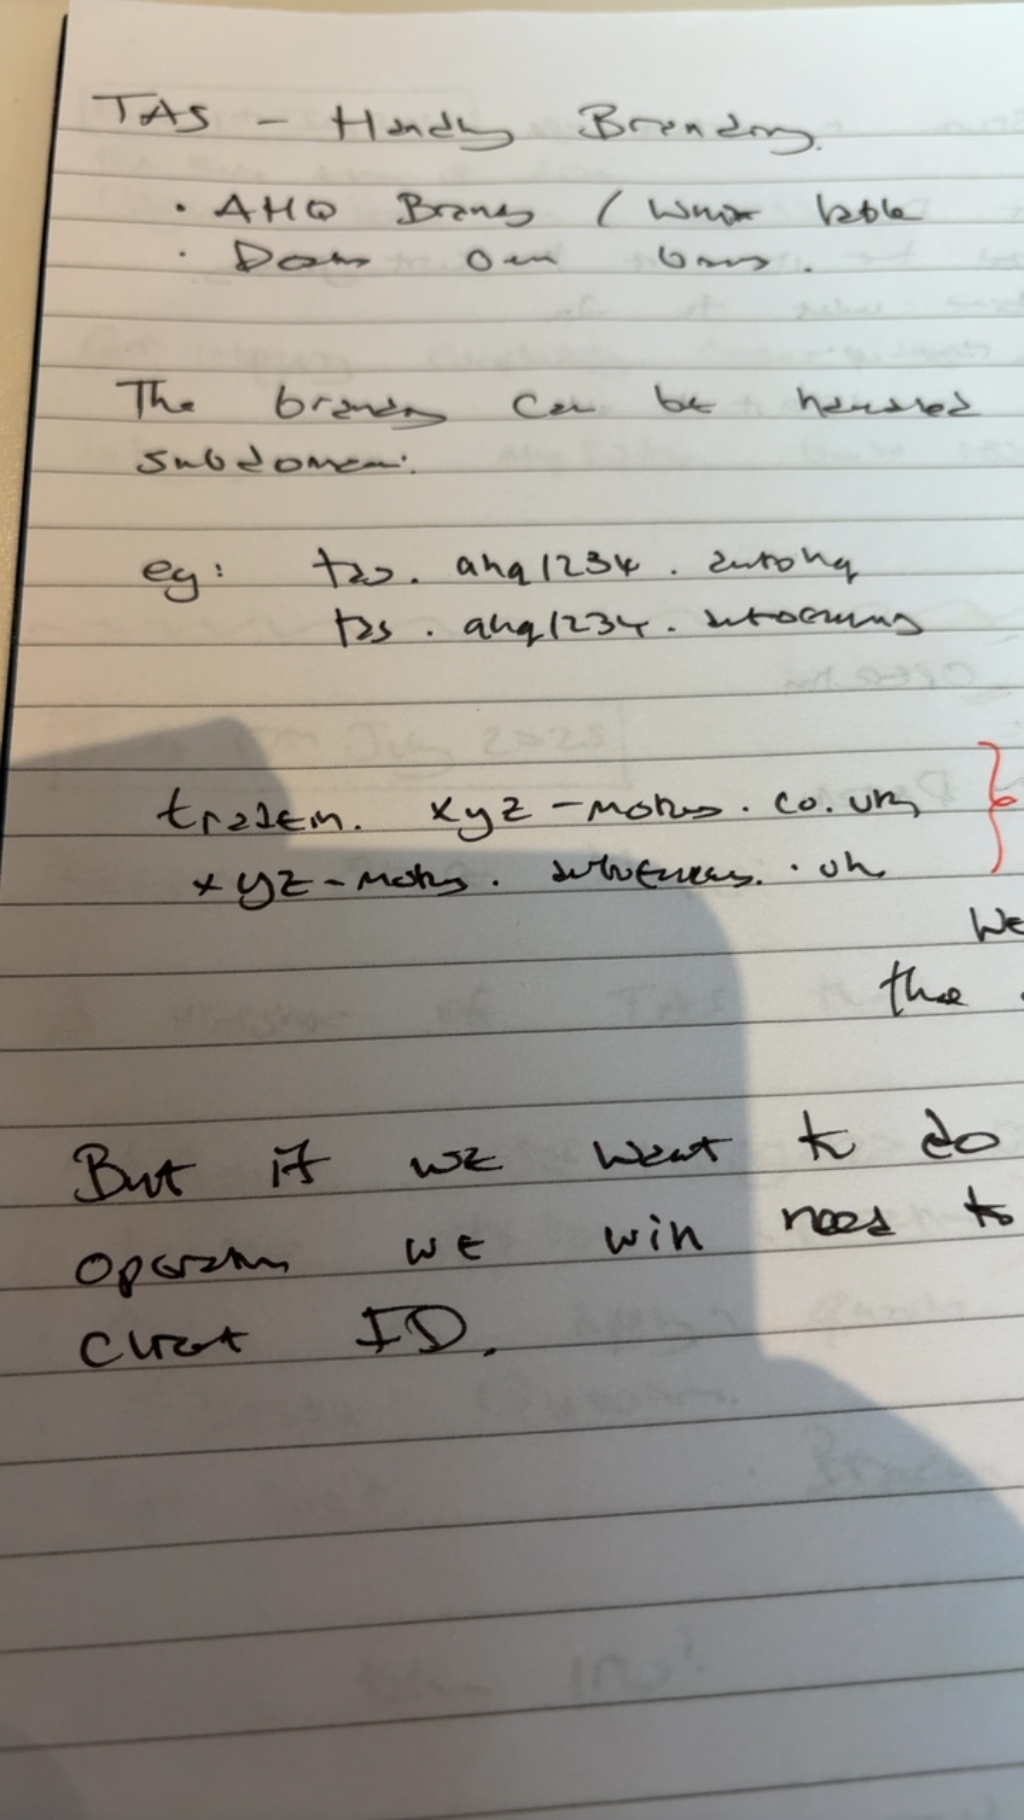 TAS - Handling Branding.
• AHQ Brands / White lable
• Dealers own brands.
The branding can be handled
subdomain.
eg: tas. ahq1234. autohq
tas. ahq1234.
tradein. xyz-motors. co.uk
xyz-motors. .uk
We
the
But if we want to do
we will need to
Client ID.